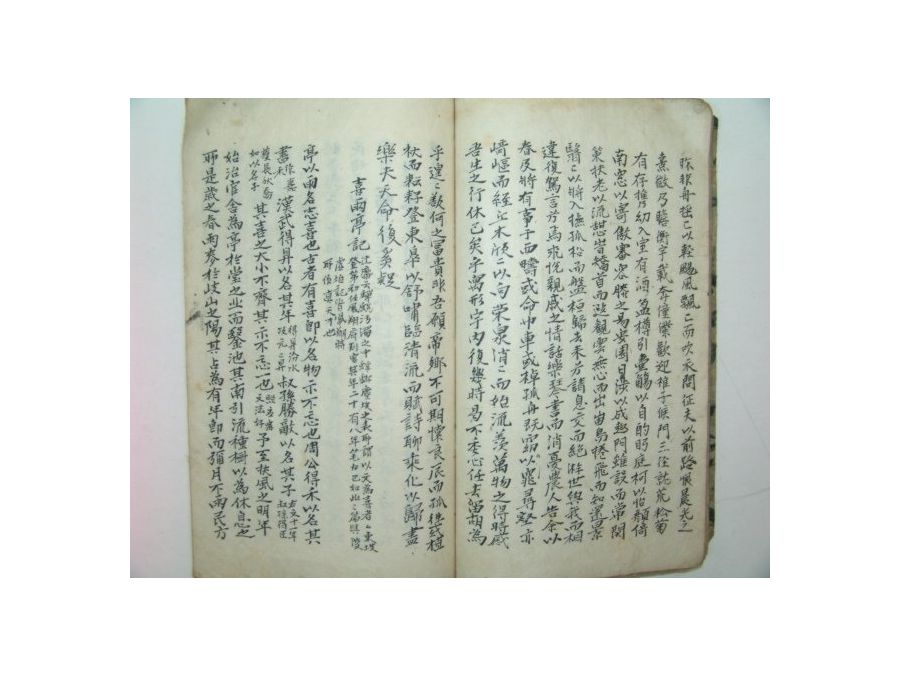 昨非舟搖〻以輕颺風飄〻而吹衣問征夫以前路恨晨光之
熹微乃瞻衡宇載奔僮僕歡迎稚子候門三徑就荒松菊
有存携幼入室有酒盈樽引壺觴以自酌眄庭柯以怡顔倚
南窓以寄傲審容膝之易安園日涉以成趣門雖設而常関
策扶老以流憩時矯首而遐觀雲無心而出岫鳥倦飛而知還景
翳〻以將入撫孤松而盤桓歸去來兮請息交而絶游世與我而相
違復駕言兮焉求悅親戚之情話樂琴書而消憂農人告余以
春及將有事于西疇或命巾車或棹孤舟既窈窕以尋壑亦
崎嶇而經丘木欣〻以向榮泉涓〻而始流羨萬物之得時感
吾生之行休已矣乎寓形宇内復幾時曷不委心任去留胡為
乎遑〻欲何之富貴非吾願帝鄉不可期懷良辰而孤往或植
杖而耘耔登東皐以舒嘯臨清流而賦詩聊乘化以歸盡
樂夫天命復奚疑
喜雨亭記
亭以雨名志喜也古者有喜即以名物示不忘也周公得禾以名其
書 漢武得鼎以名其年 叔孫勝敵以名其子
其喜之大小不齊其示不忘一也 予至扶風之明年
始治官舍為亭於堂之北而鑿池其南引流種樹以為休息之
所是歲之春雨麥於岐山之陽其占為有年即而彌月不雨民方